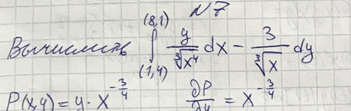 №7
Вычислить ∫_{(1,4)}^{(8,1)} y/∛(x⁴) dx − 3/∛x dy
P(x,y) = y·x^{-3/4}   ∂P/∂y = x^{-3/4}